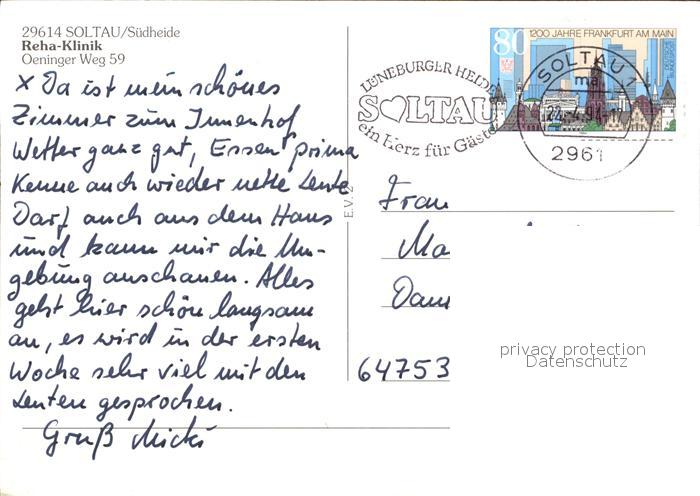 29614 SOLTAU/Südheide
Reha-Klinik
Oeninger Weg 59
x Da ist mein schönes
Zimmer zum Innenhof
Wetter ganz gut, Essen prima
Kenne auch wieder nette Leute
Darf auch aus dem Haus
und kann mir die Um-
gebung anschauen. Alles
geht hier schön langsam
an, es wird in der ersten
Woche sehr viel mit den
Leuten gesprochen.
Gruß Micki
E.V. 2
LÜNEBURGER HEIDE
SOLTAU
ein Herz für Gäste
80
1200 JAHRE FRANKFURT AM MAIN
SOLTAU 1
ma
2961
Frau
Ma
Dam
64753
privacy protection
Datenschutz